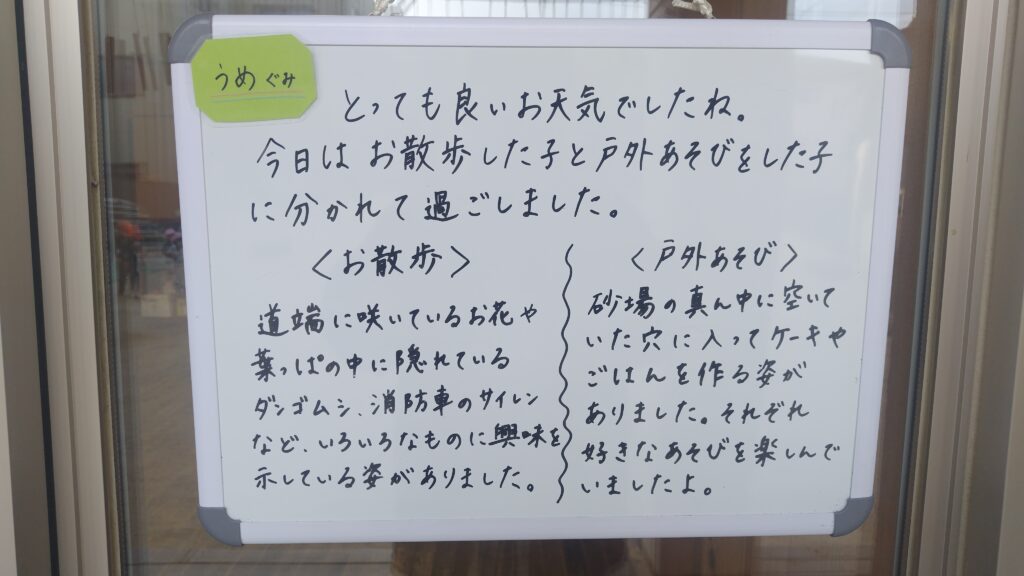 うめぐみ
とっても良いお天気でしたね。
今日はお散歩した子と戸外あそびをした子
に分かれて過ごしました。
〈お散歩〉
道端に咲いているお花や
葉っぱの中に隠れている
ダンゴムシ、消防車のサイレン
など、いろいろなものに興味を
示している姿がありました。
〈戸外あそび〉
砂場の真ん中に空いて
いた穴に入ってケーキや
ごはんを作る姿が
ありました。それぞれ
好きなあそびを楽しんで
いましたよ。